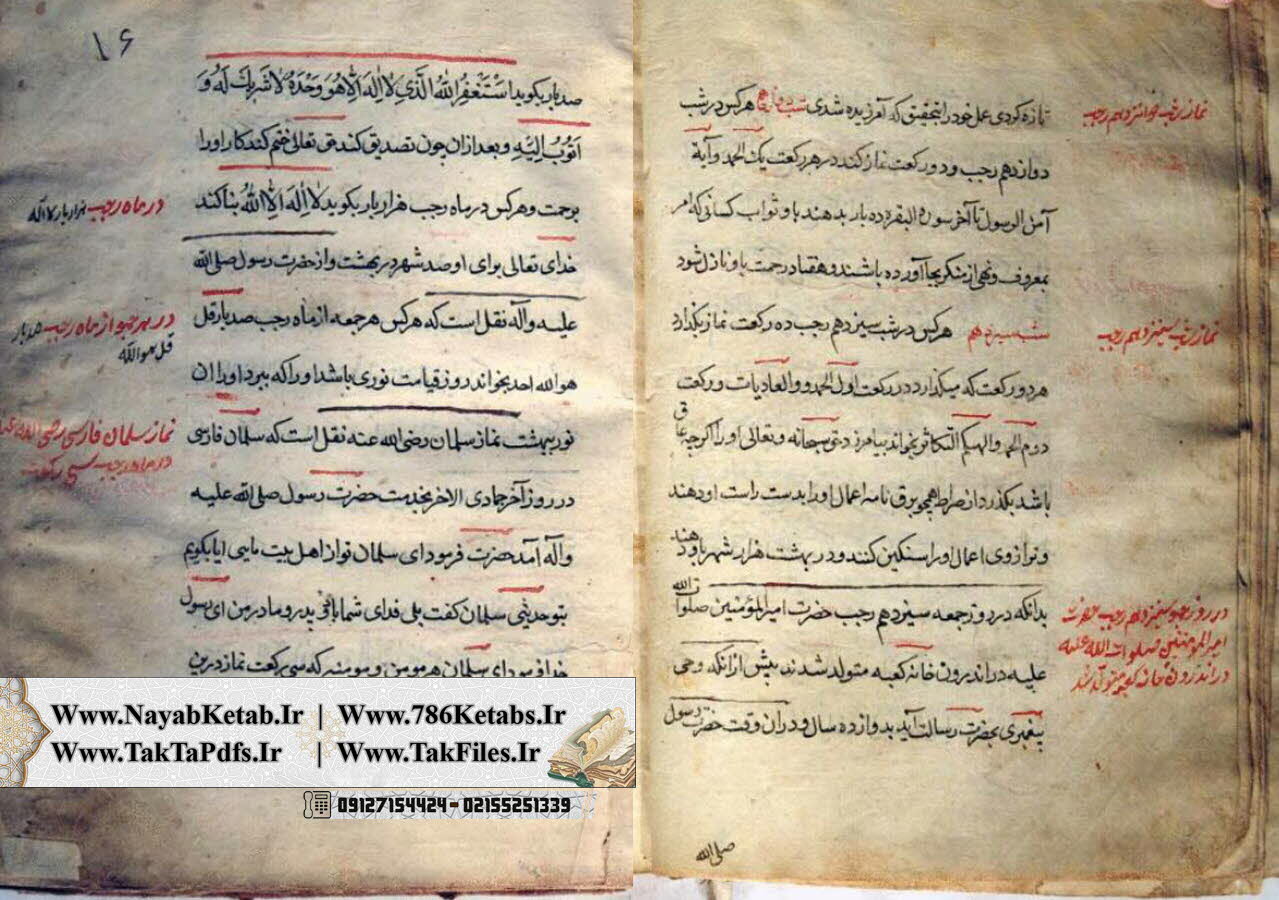 تازه کردی عمل خود را بتحقیق که آمرزیده شدی شب دوازدهم هرکس در شب
دوازدهم رجب دو رکعت نماز کند در هر رکعت یک الحمد و آیة
آمن الرسول تا آخر سوره البقره ده بار بدهند باو ثواب کسانی که امر
بمعروف و نهی از منکر بجا آورده باشند و هفتاد رحمت باو نازل شود
شب سیزدهم هرکس در شب سیزدهم رجب ده رکعت نماز بگذارد
هر دو رکعت که میگذارد در رکعت اول الحمد و والعادیات و رکعت
دوم الحمد و الهیکم التکاثر بخواند بیامرزد حق سبحانه و تعالی او را اگرچه عاق
باشد بگذرد از صراط همچو برق نامه اعمال او را بدست راست او دهند
و ترازوی اعمال او را سنگین کنند و در بهشت هزار شهر باو دهند
بدانکه در روز جمعه سیزدهم رجب حضرت امیر المؤمنین صلوات الله
علیه در اندرون خانه کعبه متولد شدند پیش از انکه وحی
پیغمبری بحضرت رسالت آید بدوازده سال و در ان وقت حضرت رسول
صلی الله
نماز شب دوازدهم رجب
نماز شب سیزدهم رجب
در روز جمعه سیزدهم رجب حضرت
امیر المؤمنین صلوات الله علیه
در اندرون خانه کعبه متولد شد
۱۶
صد بار بکوید اَسْتَغْفِرُ اللهَ الَّذی لا اِلهَ اِلّا هُوَ وَحْدَهُ لا شَریكَ لَهُ وَ
اَتُوبُ اِلَیْهِ و بعد ازان چون تصدیق کند حق تعالی ختم کند کار او را
برحمت و هرکس در ماه رجب هزار بار بکوید لا اِلهَ اِلّا اللهُ بنا کند
خدای تعالی برای او صد شهر در بهشت و از حضرت رسول صلی الله
علیه و آله نقل است که هرکس هر جمعه از ماه رجب صد بار قل
هو الله احد بخواند روز قیامت نوری باشد او را که ببرد او را ان
نور بهشت نماز سلمان رضی الله عنه نقل است که سلمان فارسی
در روز آخر جمادی الاخر بخدمت حضرت رسول صلی الله علیه
و آله آمد حضرت فرمود ای سلمان تو از اهل بیت مایی ایا بکویم
بتو حدیثی سلمان کفت بلی فدای شما باد پدر و مادر من ای رسول
خدا فرمود ای سلمان هر مومن و مومنه که سی رکعت نماز درین
در ماه رجب هزار بار لا اله
در هر جمعه از ماه رجب صد بار
قل هو الله
نماز سلمان فارسی رضی الله عنه
در ماه رجب سی رکعت
Www.NayabKetab.Ir | Www.786Ketabs.Ir
Www.TakTaPdfs.Ir | Www.TakFiles.Ir
09127154424-02155251339